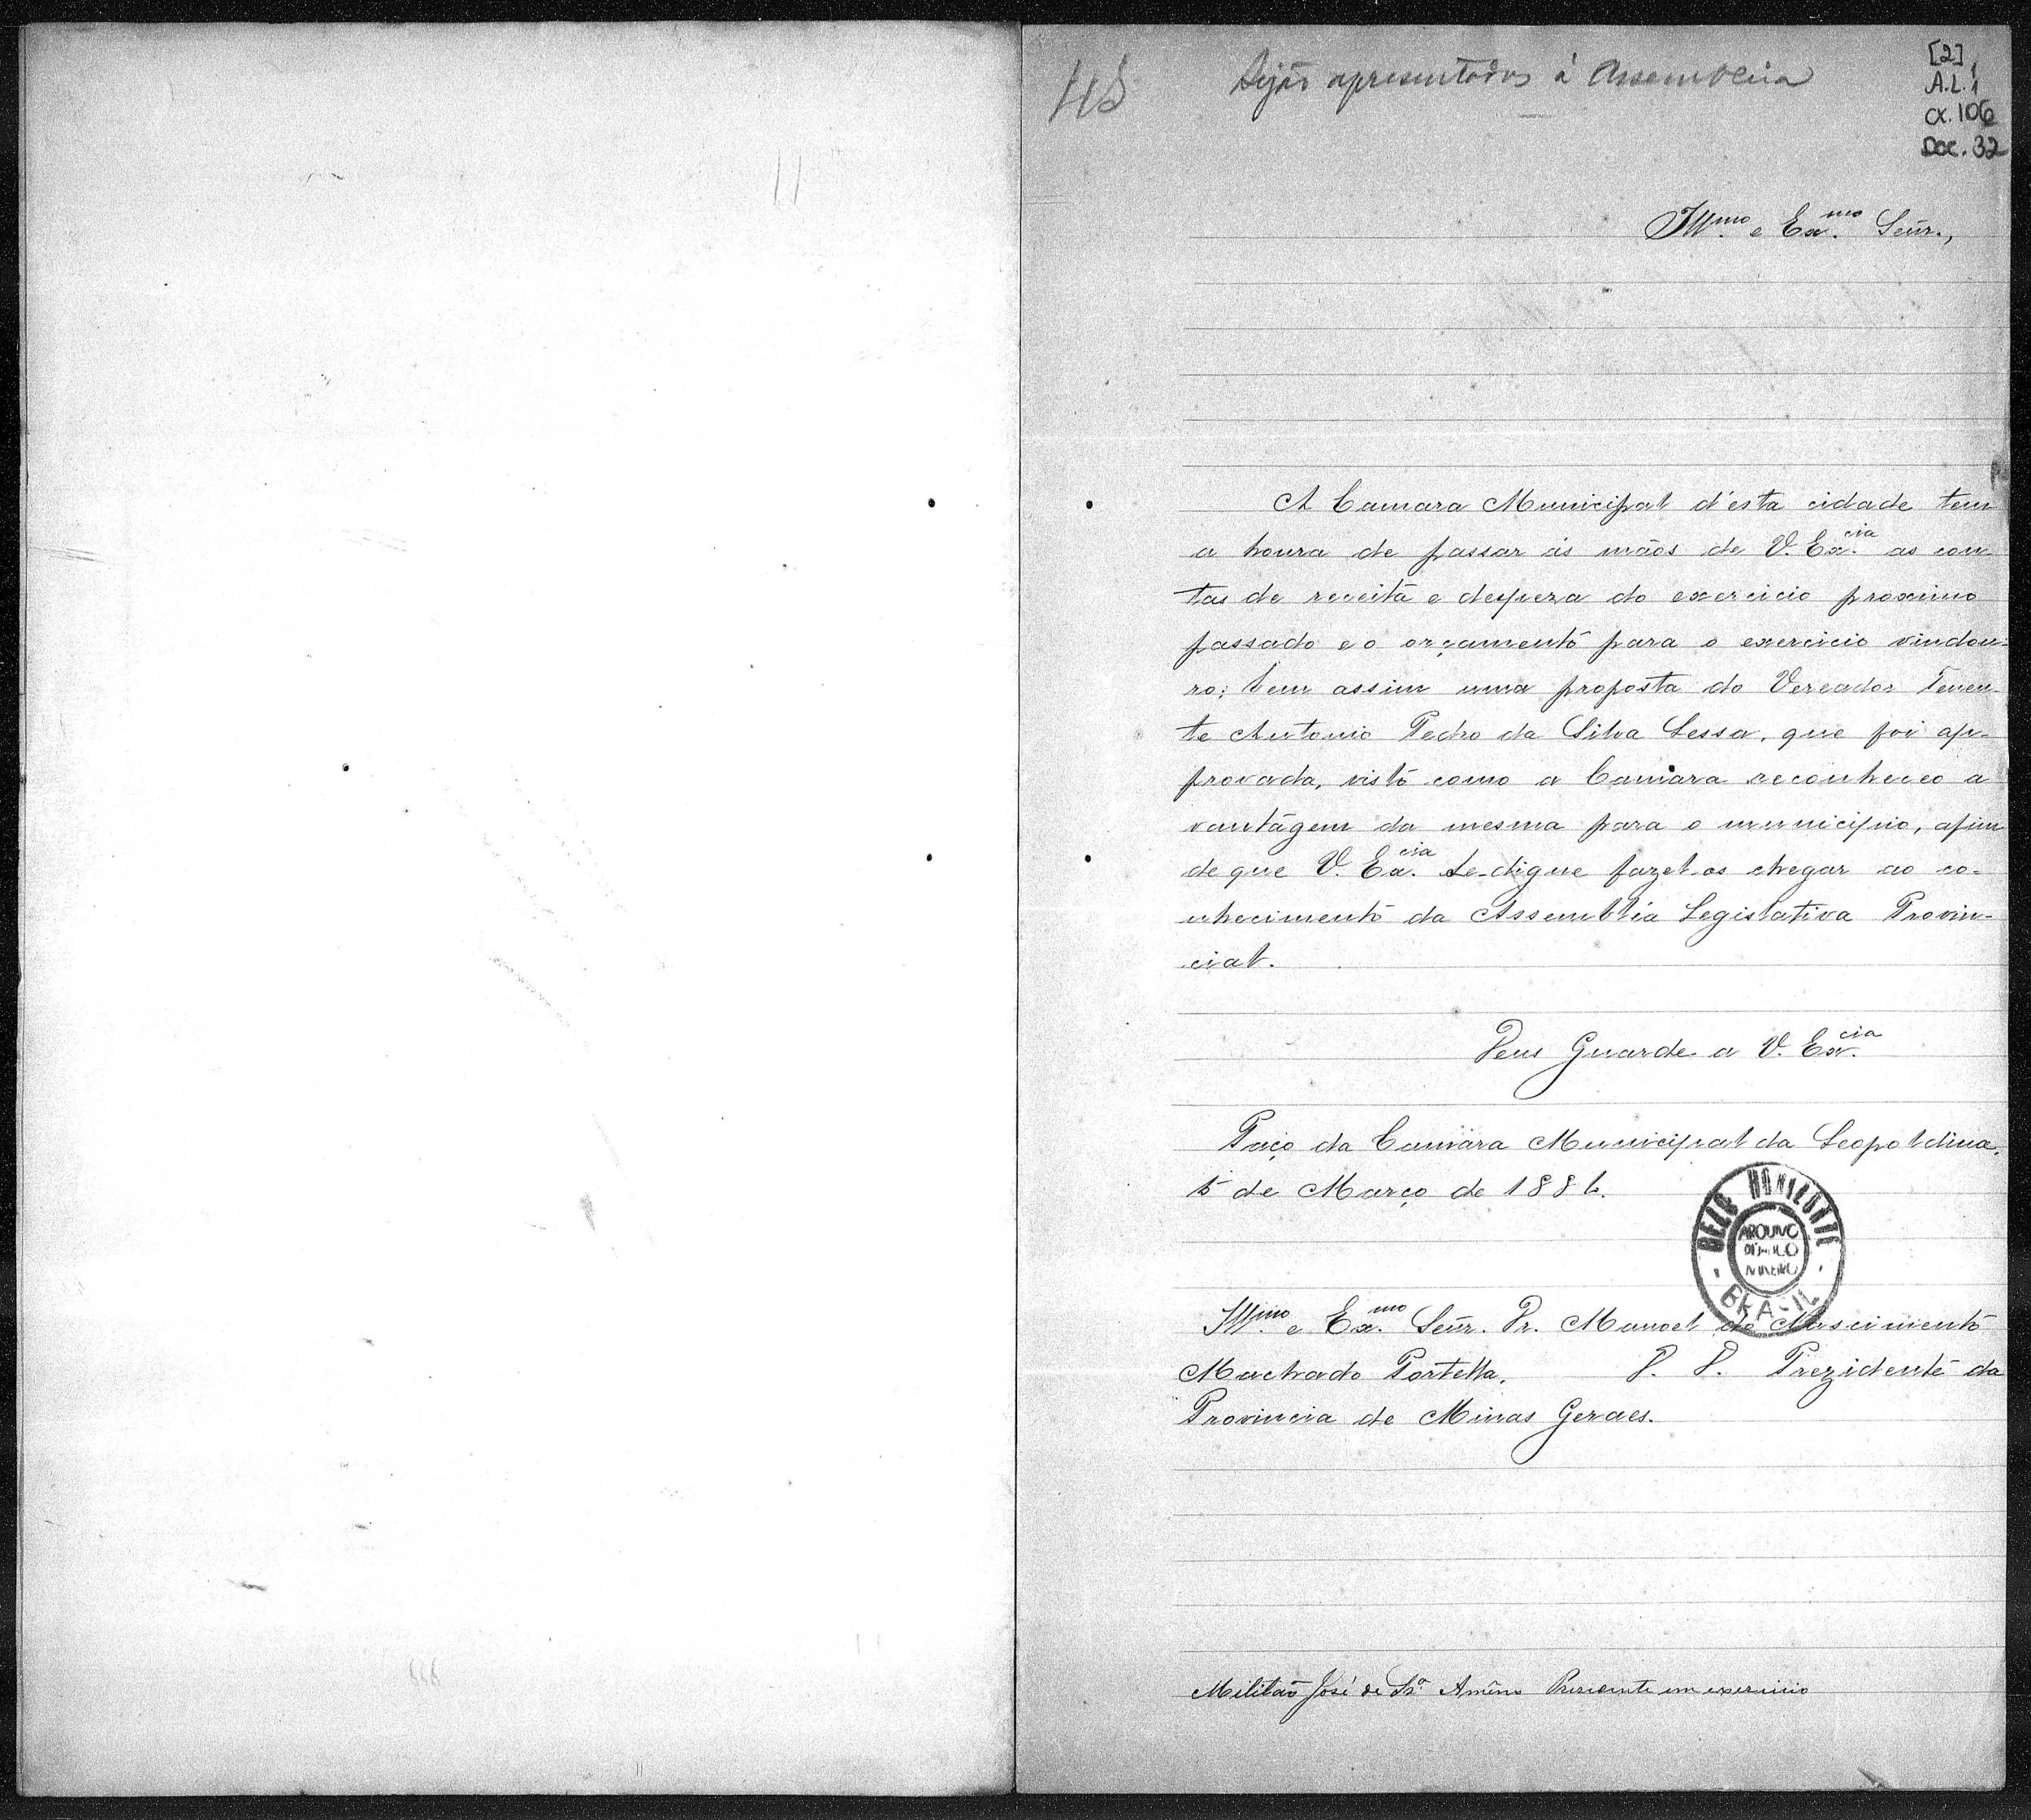 [2]
A.L.1
cx. 106
Doc. 32
Sejão apresentados á Assembleia
Illmo. e Exmo. Señr.,
A Camara Municipal d'esta cidade tem
a honra de passar ás mãos de V. Excia. as con-
tas de receita e despeza do exercicio proximo
passado e o orçamento para o exercicio vindou-
ro; bem assim uma proposta do Vereador Tenen-
te Antonio Pedro da Silva Lessa, que foi ap-
provada, visto como a Camara reconheceo a
vantagem da mesma para o municipio, afim
de que V. Excia. se digne fazel-os chegar ao co-
nhecimento da Assembléa Legislativa Provin-
cial.
Deus Guarde a V. Excia.
Paço da Camara Municipal da Leopoldina,
5 de Março de 1886.
BELO HORIZONTE
ARQUIVO
PÚBLICO
MINEIRO
BRASIL
Illmo. e Exmo. Señr. Dr. Manoel do Nascimento
Machado Portella, D. D. Prezidente da
Provincia de Minas Geraes.
Militão José de Presidente em exercicio